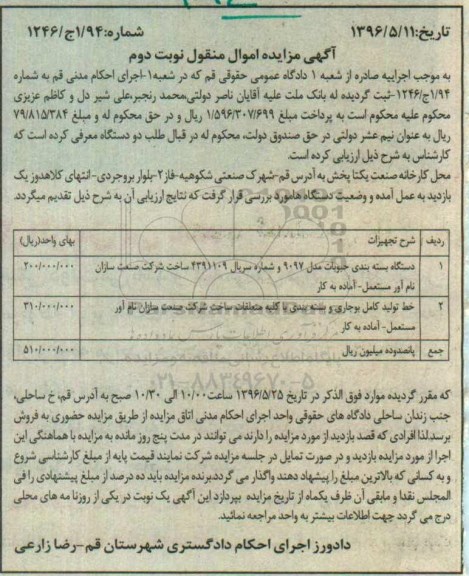 تاریخ:۱۳۹۶/۵/۱۱ شماره:۱/۹۴ج/۱۲۴۶
آگهی مزایده اموال منقول نوبت دوم
به موجب اجراییه صادره از شعبه ۱ دادگاه عمومی حقوقی قم که در شعبه۱-اجرای احکام مدنی قم به شماره
۱/۹۴ج/۱۲۴۶-ثبت گردیده له بانک ملت علیه آقایان ناصر دولتی،محمد رنجبر،علی شیر دل و کاظم عزیزی
محکوم علیه محکوم است به پرداخت مبلغ ۱/۵۹۶/۳۰۷/۶۹۹ ریال و در حق محکوم له و مبلغ ۷۹/۸۱۵/۳۸۴
ریال به عنوان نیم عشر دولتی در حق صندوق دولت، محکوم له در قبال طلب دو دستگاه معرفی کرده است که
کارشناس به شرح ذیل ارزیابی کرده است.
محل کارخانه صنعت یکتا پخش به آدرس قم-شهرک صنعتی شکوهیه-فاز۲-بلوار بروجردی-انتهای کلاهدوز یک
بازدید به عمل آمده و وضعیت دستگاه هامورد بررسی قرار گرفت که نتایج ارزیابی آن به شرح ذیل تقدیم میگردد.
ردیف شرح تجهیزات بهای واحد(ریال)
۱ دستگاه بسته بندی حبوبات مدل ۹۰۹۷ و شماره سریال ۴۳۹۱۱۰۹ ساخت شرکت صنعت سازان ۲۰۰/۰۰۰/۰۰۰
نام آور مستعمل- آماده به کار
۲ خط تولید کامل بوجاری و بسته بندی با کلیه متعلقات ساخت شرکت صنعت سازان نام آور ۳۱۰/۰۰۰/۰۰۰
مستعمل- آماده به کار
جمع پانصدوده میلیون ریال ۵۱۰/۰۰۰/۰۰۰
۰۲۱-۸۸۳۴۹۶۷۰-۵
که مقرر گردیده موارد فوق الذکر در تاریخ ۱۳۹۶/۵/۲۵ ساعت۱۰/۰۰ الی ۱۰/۳۰ صبح به آدرس قم، خ ساحلی،
جنب زندان ساحلی دادگاه های حقوقی واحد اجرای احکام مدنی اتاق مزایده از طریق مزایده حضوری به فروش
برسد.لذا افرادی که قصد بازدید از مورد مزایده را دارند می توانند در مدت پنج روز مانده به مزایده با هماهنگی این
اجرا از مورد مزایده بازدید و در صورت تمایل در جلسه مزایده شرکت نمایند قیمت پایه از مبلغ کارشناسی شروع
و به کسانی که بالاترین مبلغ را پیشنهاد دهند واگذار می گردد.برنده مزایده باید ده درصد از مبلغ پیشنهادی را فی
المجلس نقدا و مابقی آن ظرف یکماه از تاریخ مزایده بپردازد این آگهی یک نوبت در یکی از روزنا مه های محلی
درج می گردد جهت اطلاعات بیشتر به واحد مراجعه نمائید.
دادورز اجرای احکام دادگستری شهرستان قم-رضا زارعی